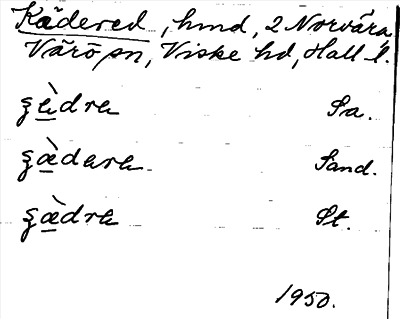 Kädered, hmd, 2 Norvära
Värö sn, Viske hd, Hall l.
ꞩæ̀dra Sa.
ꞩæ̀dara Sand.
ꞩæ̀dra St.
1950.